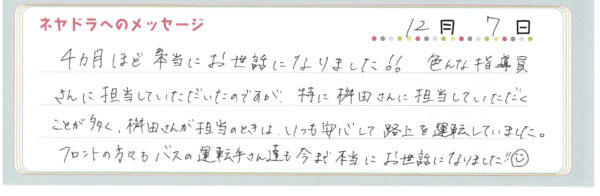 ネヤドラへのメッセージ
12月 7日
4カ月ほど本当にお世話になりました!! 色んな指導員
さんに担当していただいたのですが、特に桝田さんに担当していただく
ことが多く、桝田さんが担当のときは、いつも安心して路上を運転していました。
フロントの方々もバスの運転手さん達も今まで本当にお世話になりました!!☺